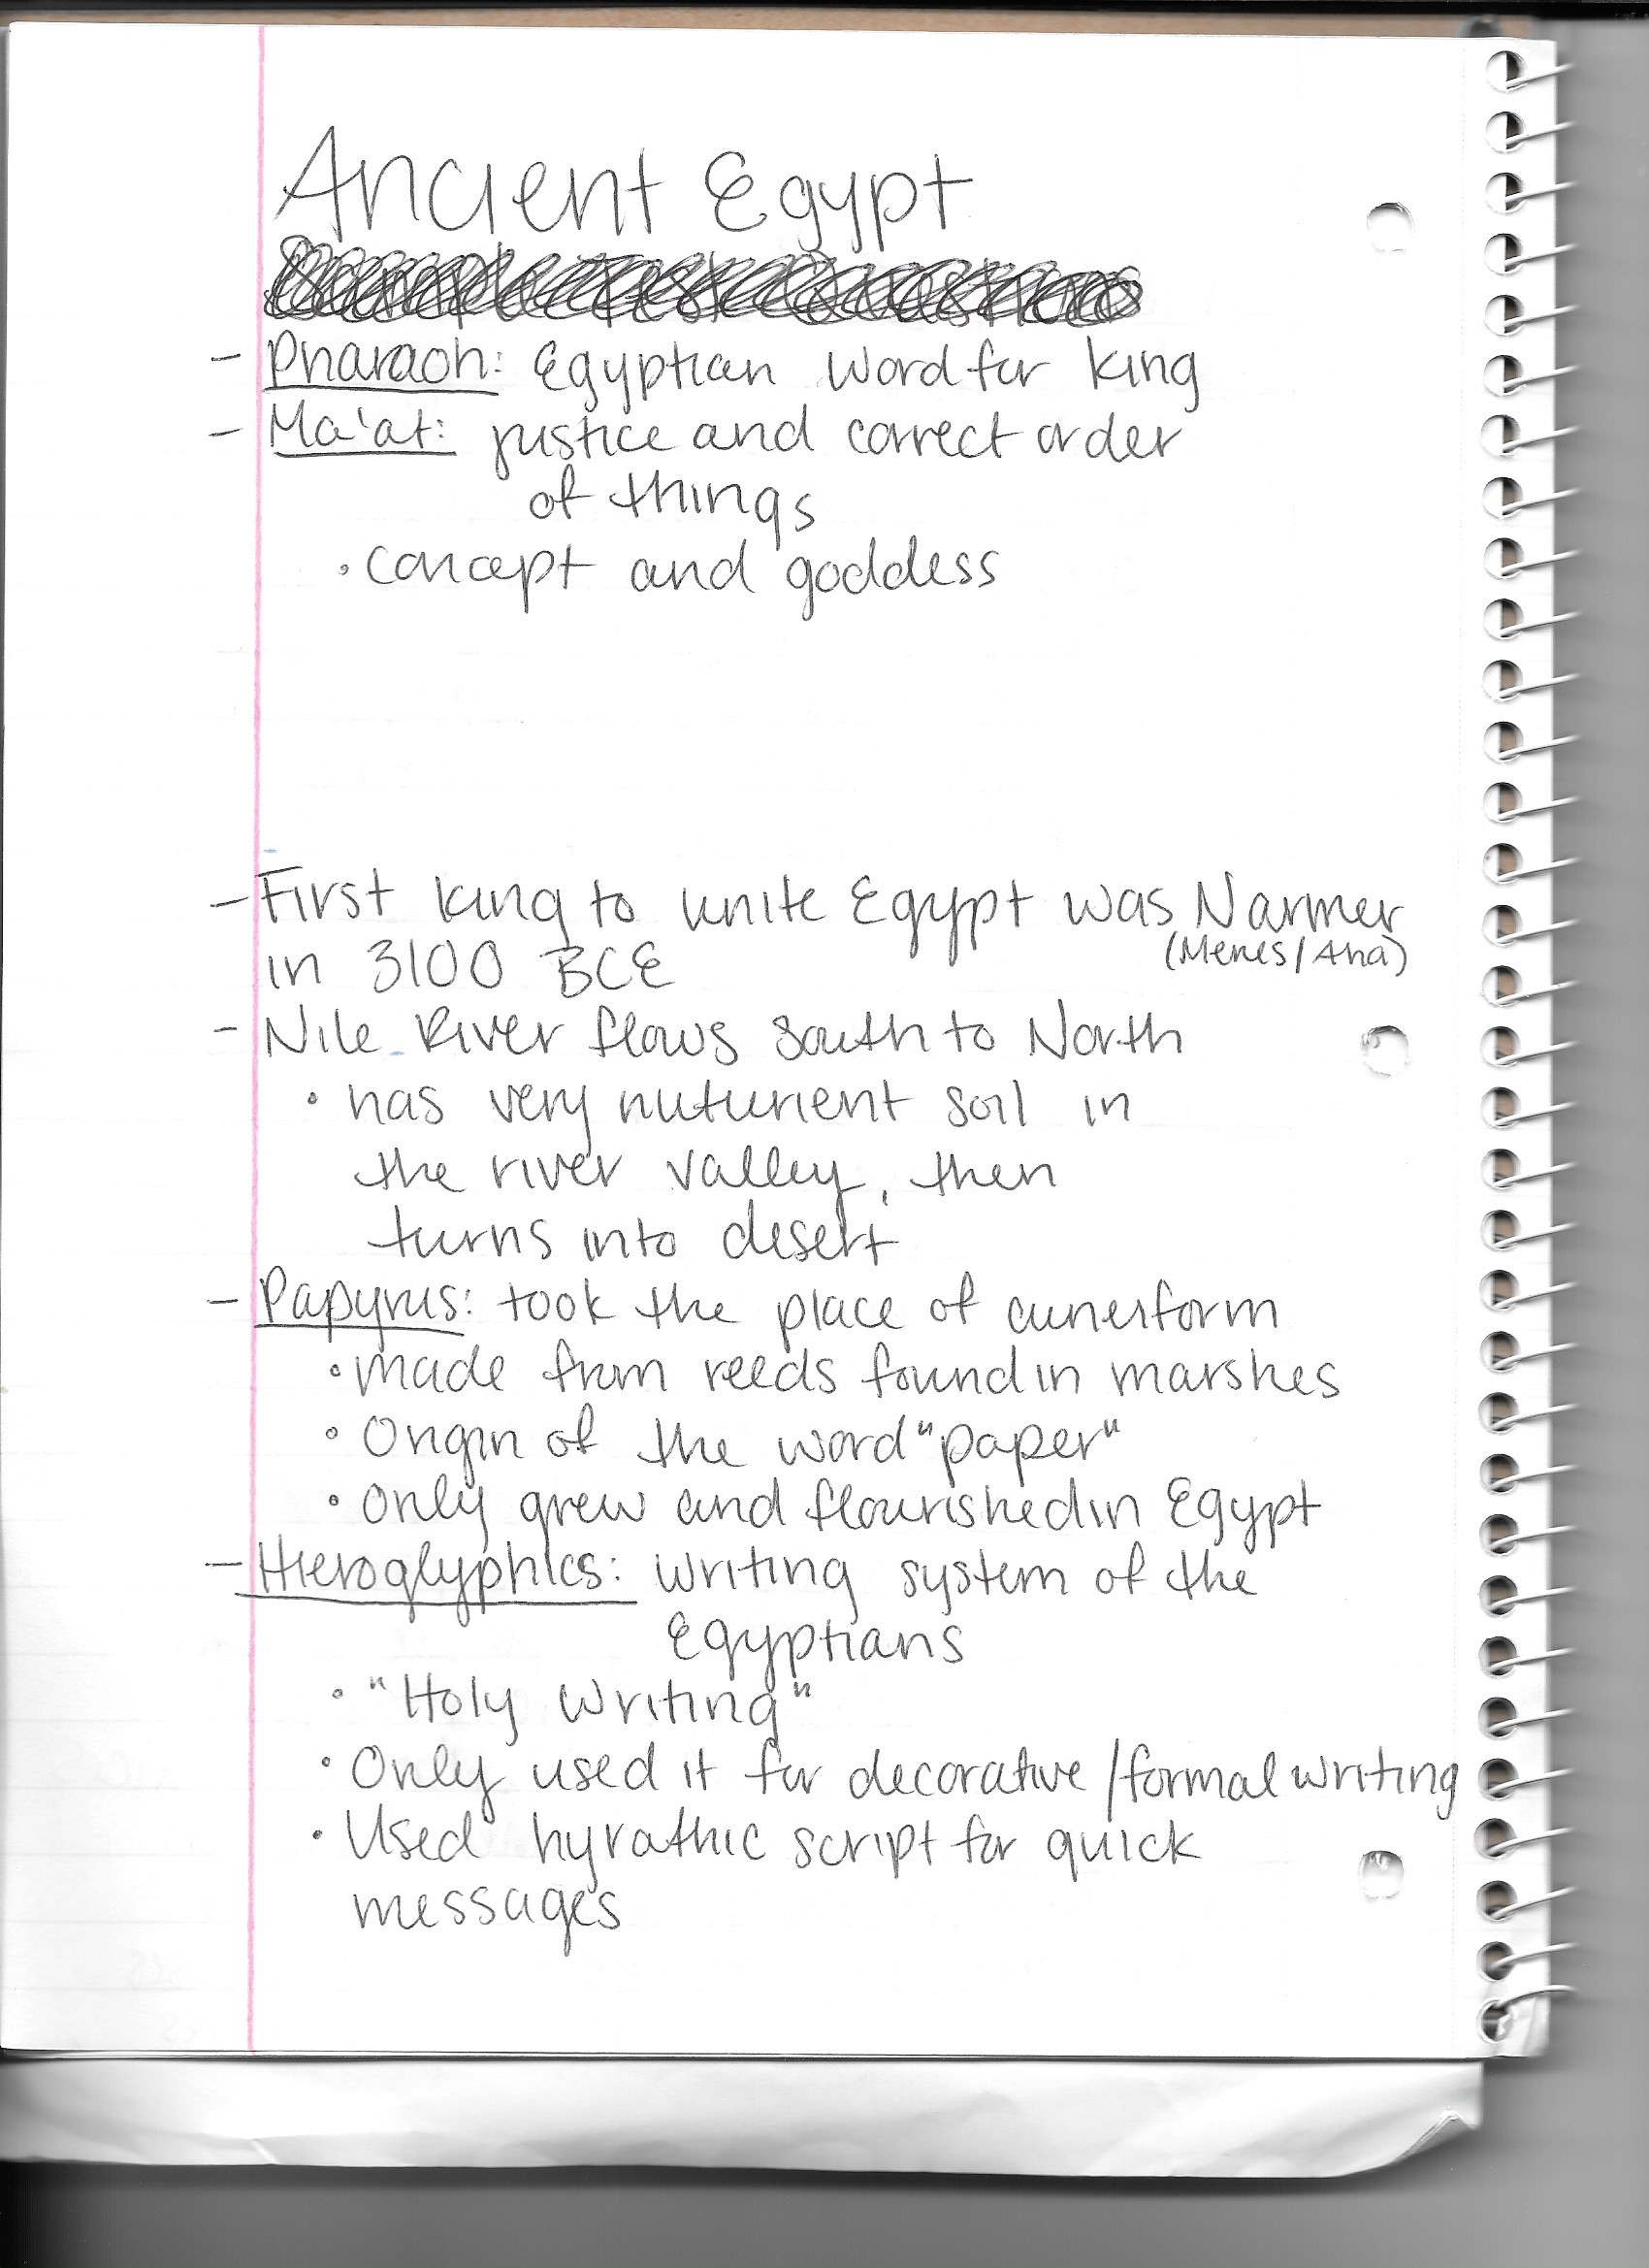 Ancient Egypt
- Pharaoh: Egyptian word for king
- Ma'at: justice and correct order
of things
• concept and goddess
- First king to unite Egypt was Narmer
in 3100 BCE (Menes/Aha)
- Nile River flows South to North
• has very nuturient soil in
the river valley, then
turns into desert
- Papyrus: took the place of cuneiform
• made from reeds found in marshes
• Origin of the word "paper"
• Only grew and flourished in Egypt
- Hieroglyphics: writing system of the
Egyptians
• "Holy Writing"
• Only used it for decorative/formal writing
• Used hyrathic script for quick
messages